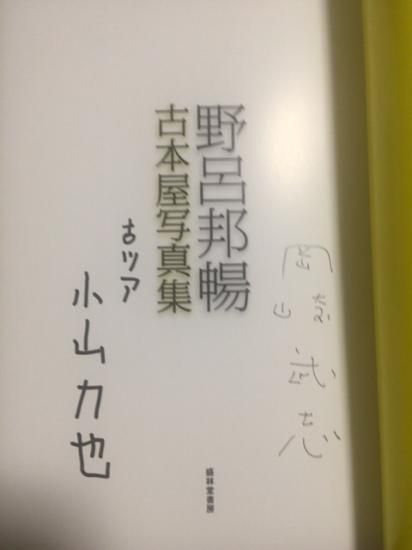 岡崎武志
野呂邦暢
古本屋写真集
古ツア
小山力也
盛林堂書房